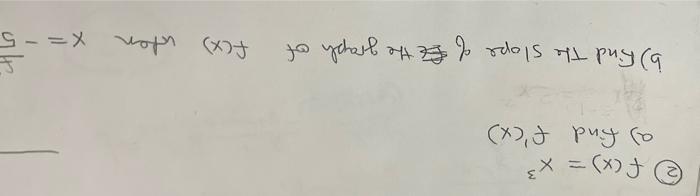 ② f(x) = x³
a) find f'(x)
b) find the slope of the graph of f(x) when x = -